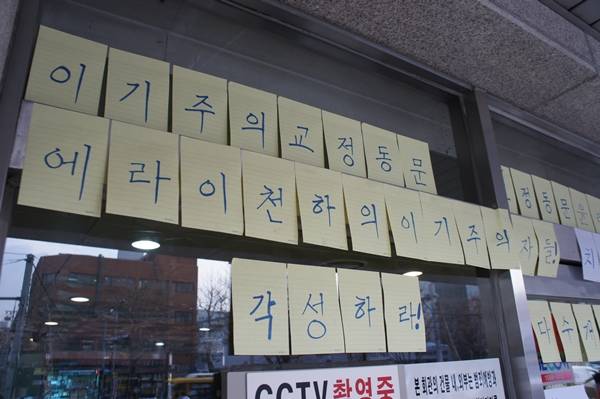 이기주의교정동문
에라이천하의이기주의자들!
각성하라!
정동문
다수
CCTV 촬영중
본 회관의 건물 내,외부는 범죄예방과